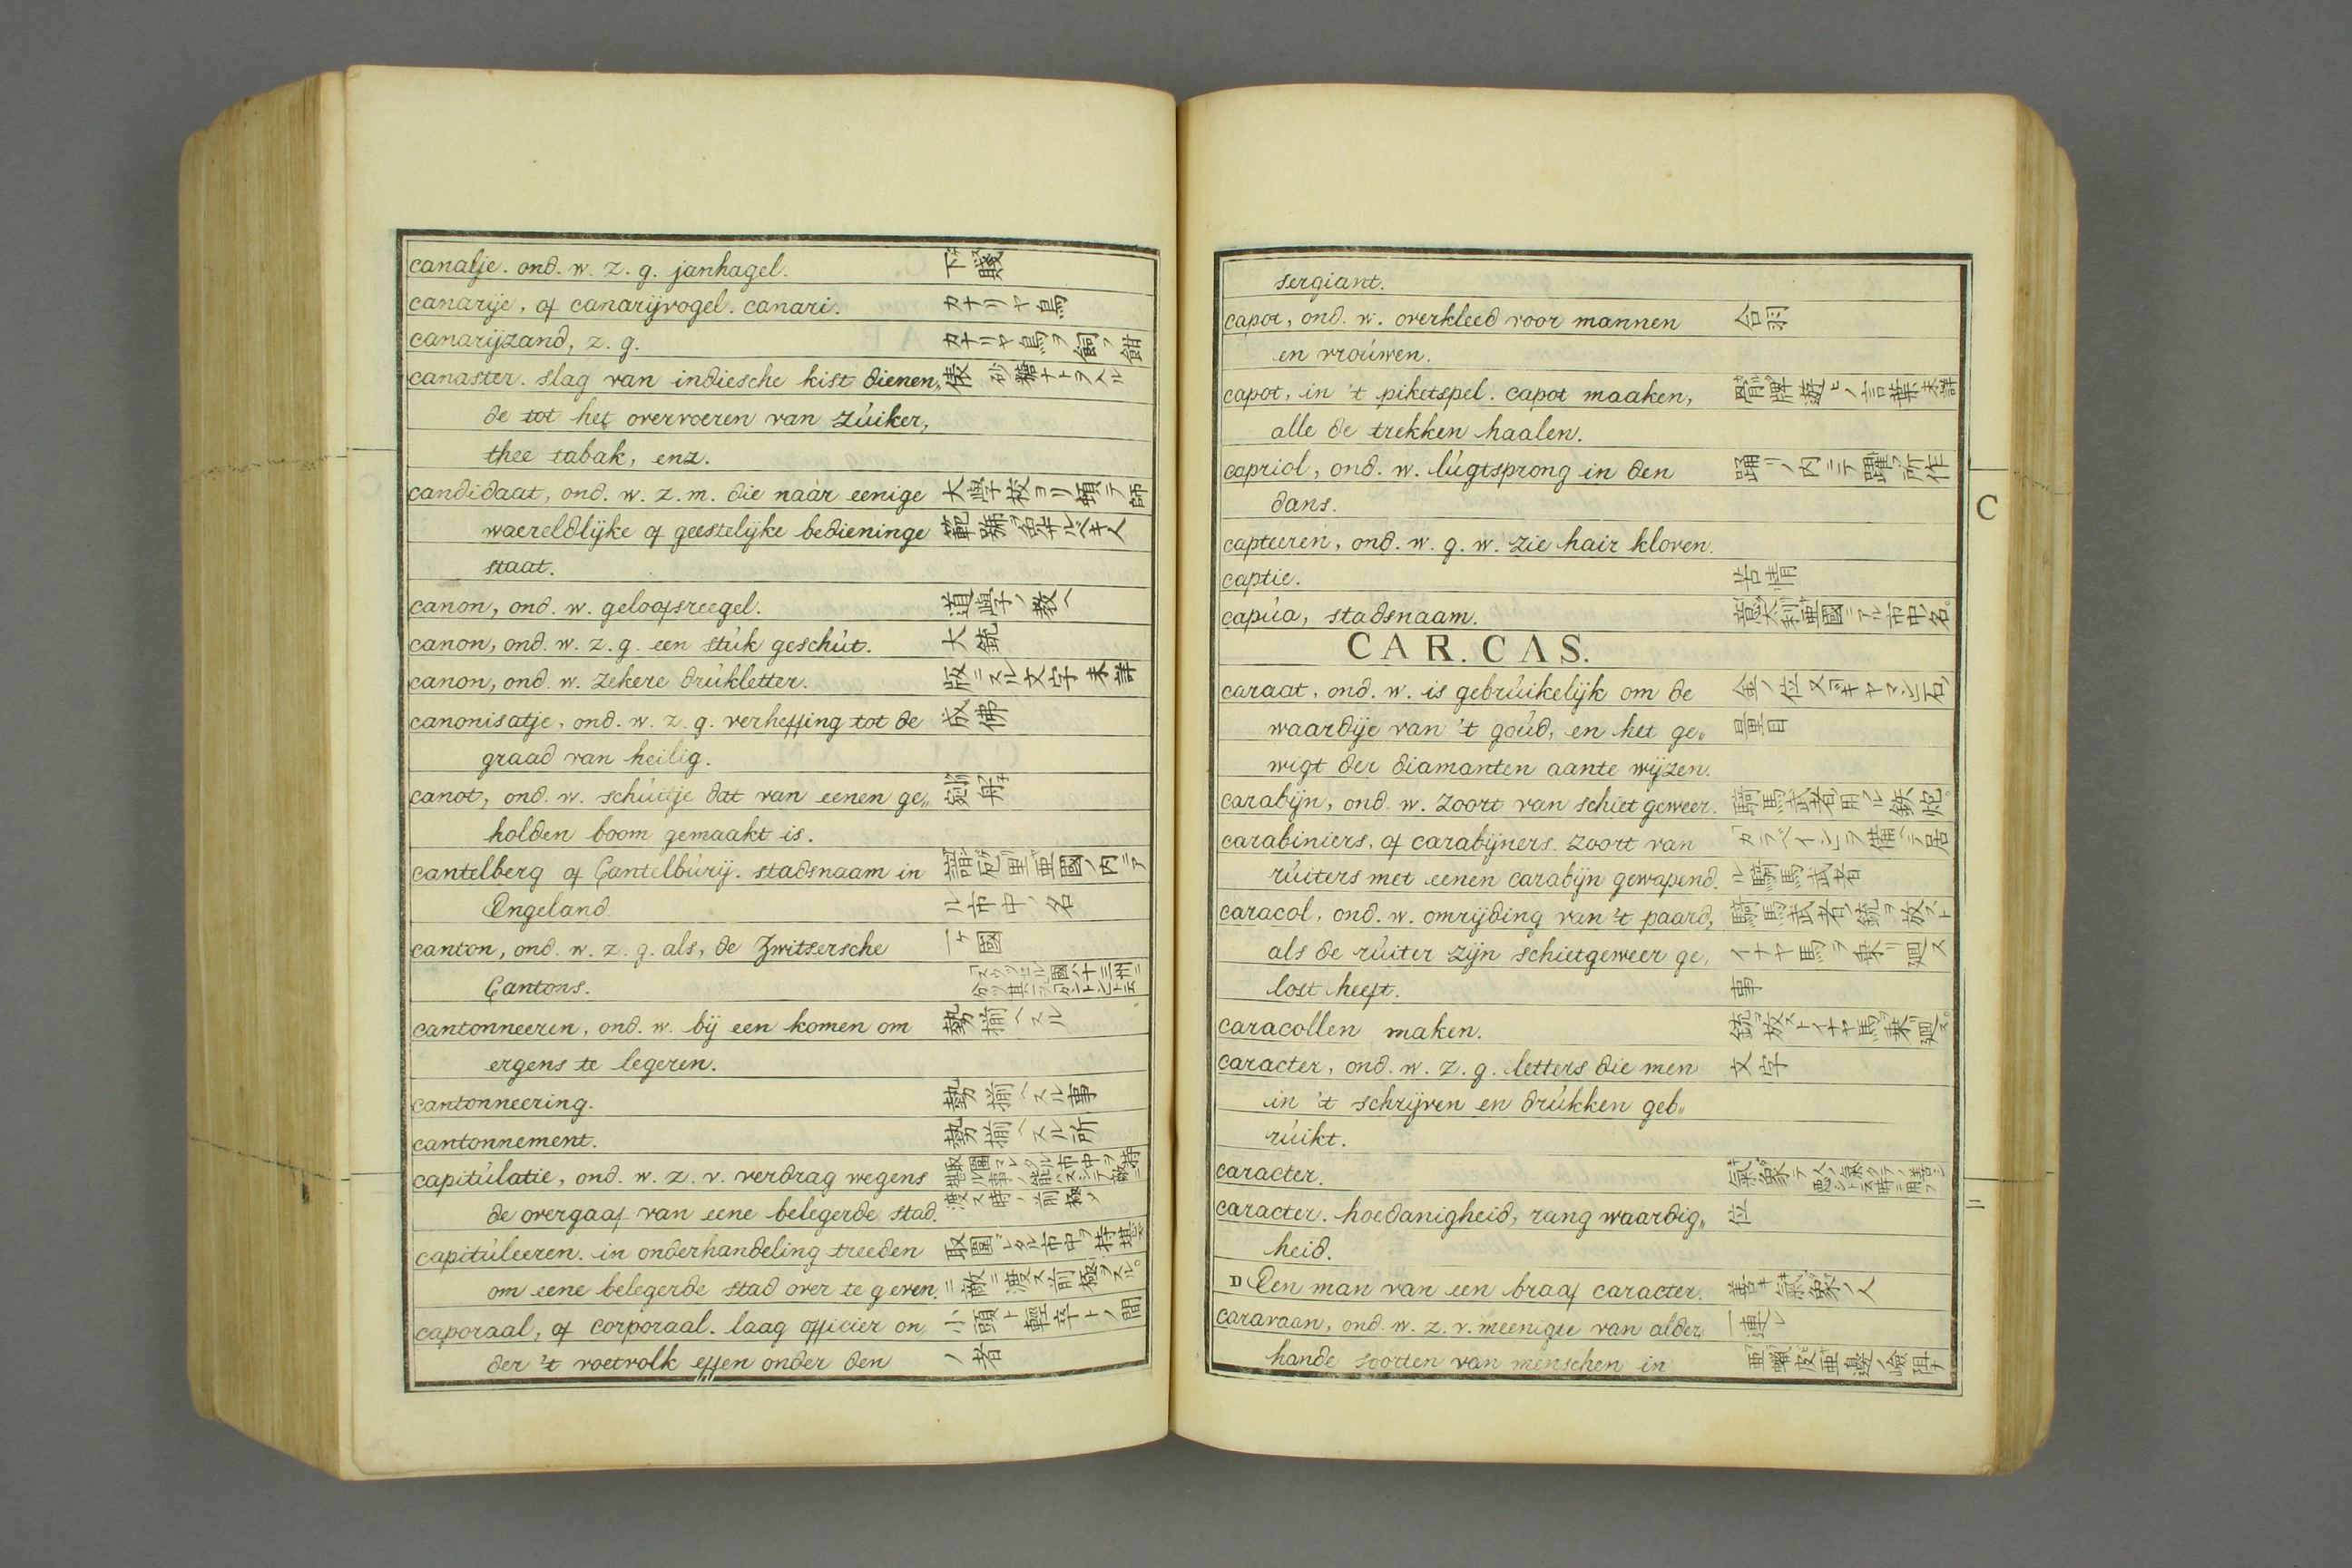 canalje. ond. w. z. g. janhagel. 下賤
canarije, of canarijvogel. canari. カナリヤ鳥
canarijzand, z. g. カナリヤ鳥ヲ飼フ餌
canaster. slag van indiesche kist dienen„ 俵 砂糖ナトヲ入ル
de tot het overvoeren van zúiker,
thee tabak, enz.
candidaat, ond. w. z. m. die naar eenige 大學校ヨリ頓テ師
waereldlijke of geestelijke bedieninge 範號
staat.
canon, ond. w. geloofsreegel. 道學ノ教ヘ
canon, ond. w. z. g. een stúk geschút. 大銃
canon, ond. w. zekere drúkletter. 版ニスル文字未詳
canonisatje, ond. w. z. g. verheffing tot de 成佛
graad van heilig.
canot, ond. w. schúitje dat van eenen ge„
holden boom gemaakt is.
cantelberg of Cantelbúrij. stadsnaam in 諳厄里亜國ノ内ニア
Engeland ル市中ノ名
canton, ond. w. z. g. als, de Zwitsersche 一ケ國
Cantons.
cantonneeren, ond. w. bij een komen om 勢揃ヘスル
ergens te legeren.
cantonneering. 勢揃ヘスル事
cantonnement. 勢揃ヘスル所
capitúlatie, ond. w. z. v. verdrag wegens
de overgaaf van eene belegerde stad. 渡ス時ノ前極メ
capitúleeren. in onderhandeling treeden
om eene belegerde stad over te geven. ニ敵ニ渡ス前極ヲスル。
caporaal, of corporaal. laag officier on„ 小頭ト輕卒トノ間
der 't voetvolk effen onder den ノ者
sergiant.
capot, ond. w. overkleed voor mannen 合羽
en vroúwen.
capot, in 't piketspel. capot maaken, 骨牌遊ヒノ言葉未詳
alle de trekken haalen.
capriol, ond. w. lúgtsprong in den 踊リノ内ニテ躍ル所作
dans.
capteeren, ond. w. g. w. zie hair kloven.
captie. 苦情
capúa, stadsnaam. 意太利亜國ニアル市中ノ名。
CAR. CAS.
C
caraat, ond. w. is gebrúikelijk om de
waardije van 't goúd, en het ge„ 量目
wigt der diamanten aante wijzen.
carabijn, ond. w. zoort van schiet geweer. 騎馬武者ノ用フル鉄炮。
carabiniers, of carabijners. zoort van 「カラベイン」ヲ備ヘテ居
rúiters met eenen carabijn gewapend. ル騎馬武者
caracol, ond. w. omrijding van 't paard, 騎馬武者ノ銃ヲ放スト
als de rúiter zijn schietgeweer ge„ イナヤ馬ヲ乗リ廻ス
lost heeft. 事
caracollen maken. 銃ヲ放ストイナヤ馬ヲ乗リ廻ス。
caracter, ond. w. z. g. letters die men 文字
in 't schrijven en drúkken geb„
rúikt.
caracter.
caracter. hoedanigheid, rang waardig„ 位
heid.
D Een man van een braaf caracter. 善キ氣象ノ人
caravaan, ond. w. z. v. meenigte van alder„ 一連レ
hande soorten van menschen in